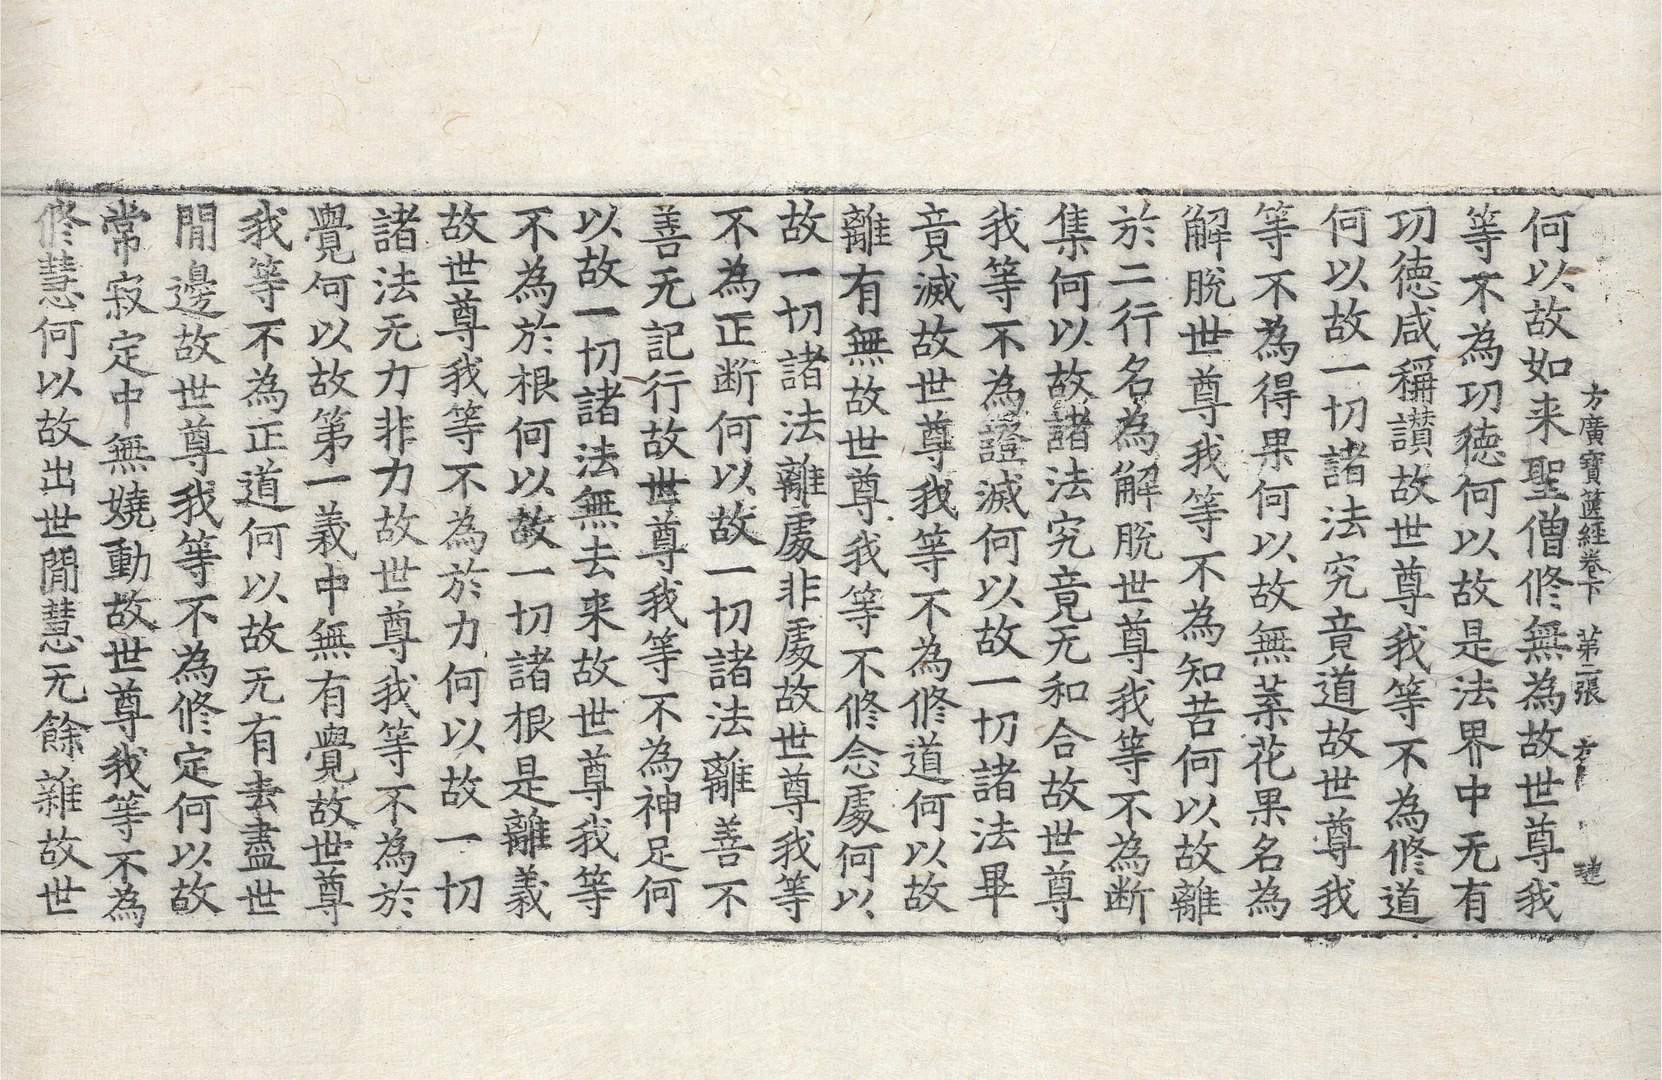 方廣寶篋經卷下 第二張 方
何以故如来聖僧修無為故世尊我
等不為功德何以故是法界中无有
功德咸稱讃故世尊我等不為修道
何以故一切諸法究竟道故世尊我
等不為得果何以故無菓花果名為
解脫世尊我等不為知苦何以故離
於二行名為解脫世尊我等不為断
集何以故諸法究竟无和合故世尊
我等不為證滅何以故一切諸法畢
竟滅故世尊我等不為修道何以故
離有無故世尊我等不修念處何以
故一切諸法離處非處故世尊我等
不為正断何以故一切諸法離善不
善无記行故世尊我等不為神足何
以故一切諸法無去来故世尊我等
不為於根何以故一切諸根是離義
故世尊我等不為於力何以故一切
諸法无力非力故世尊我等不為於
覺何以故第一義中無有覺故世尊
我等不為正道何以故无有去盡世
間邊故世尊我等不為修定何以故
常寂定中無嬈動故世尊我等不為
修慧何以故出世間慧无餘雜故世